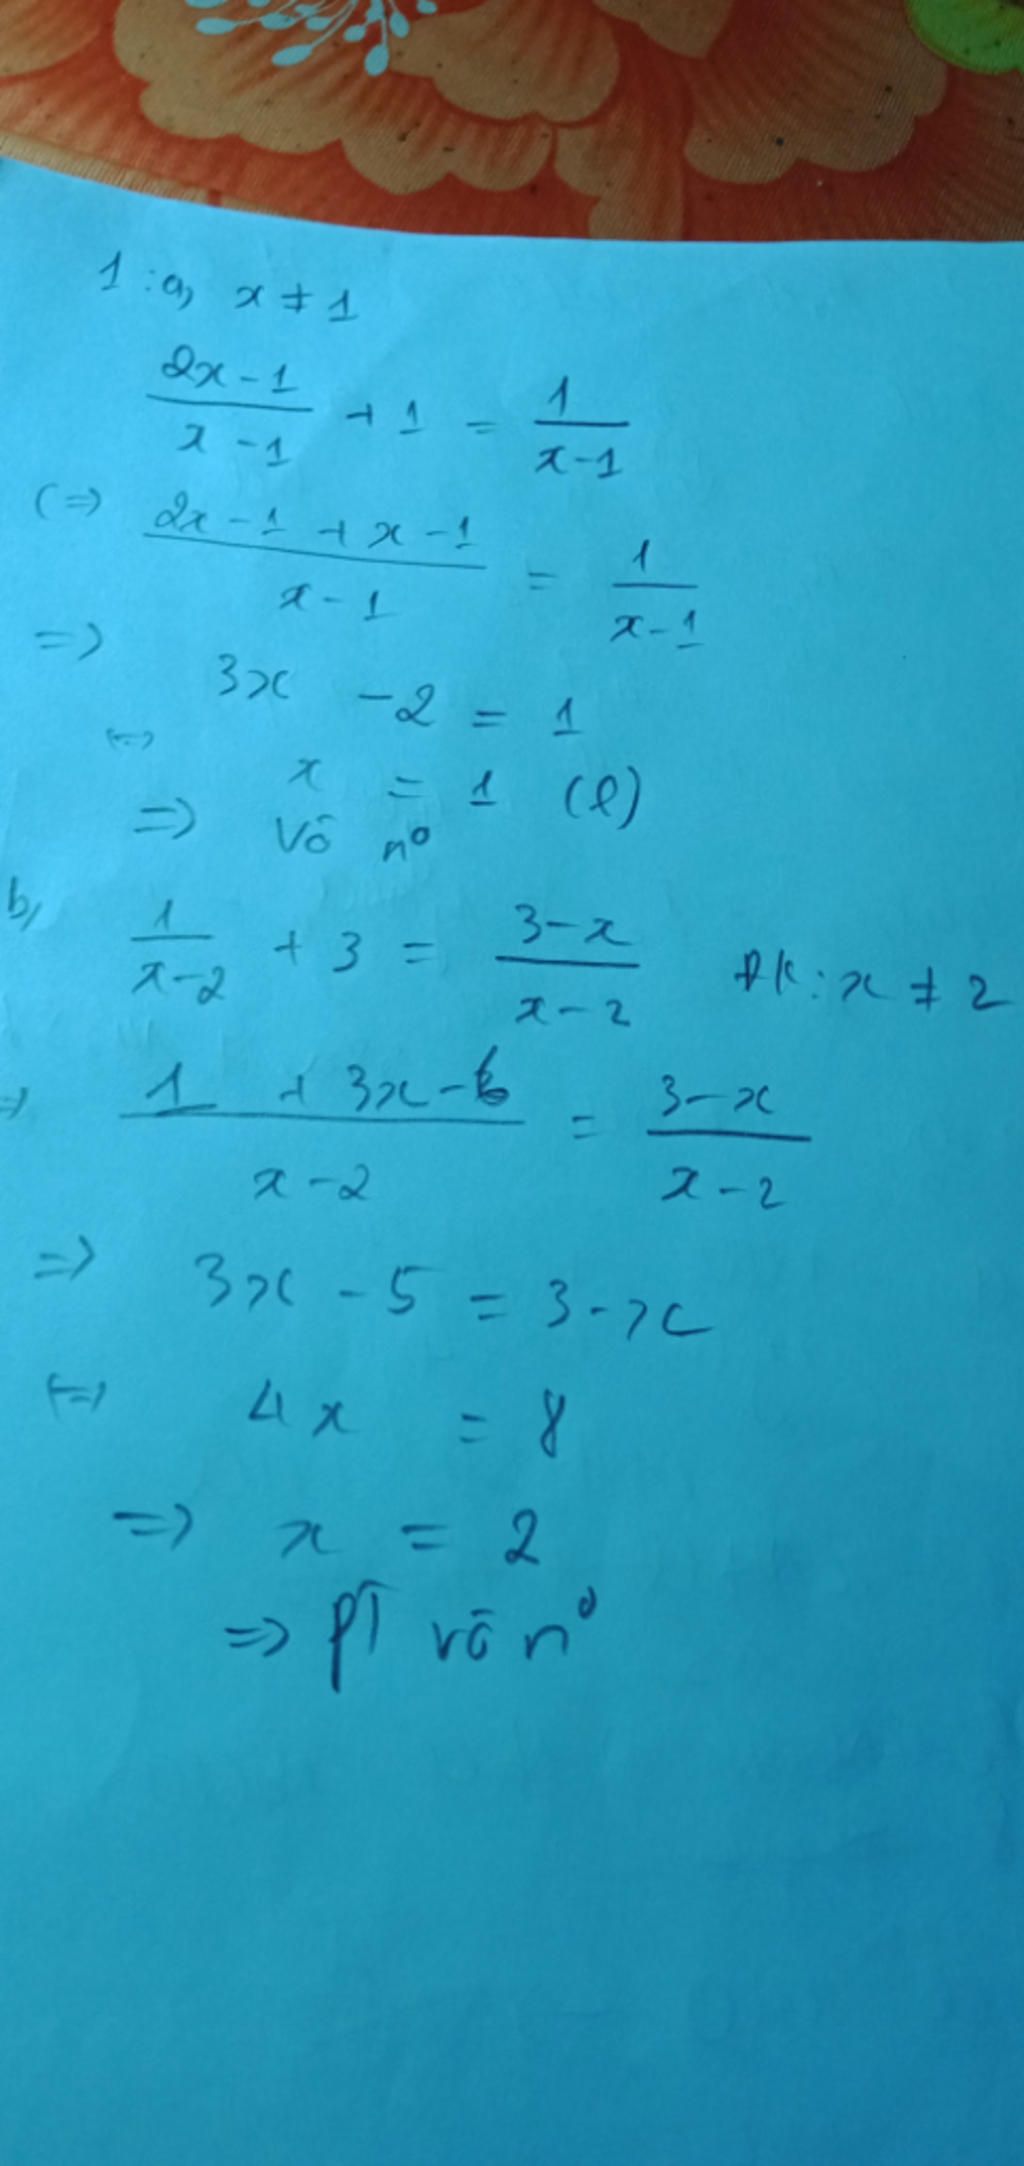 1 : a, x ≠ 1
(2x - 1)/(x - 1) + 1 = 1/(x - 1)
(=> (2x - 1 + x - 1)/(x - 1) = 1/(x - 1)
=> 3x - 2 = 1
<=> x = 1 (l)
=> Vô n°
b, 1/(x - 2) + 3 = (3 - x)/(x - 2) ĐK : x ≠ 2
=> (1 + 3x - 6)/(x - 2) = (3 - x)/(x - 2)
=> 3x - 5 = 3 - x
<=> 4x = 8
=> x = 2
=> PT vô n°